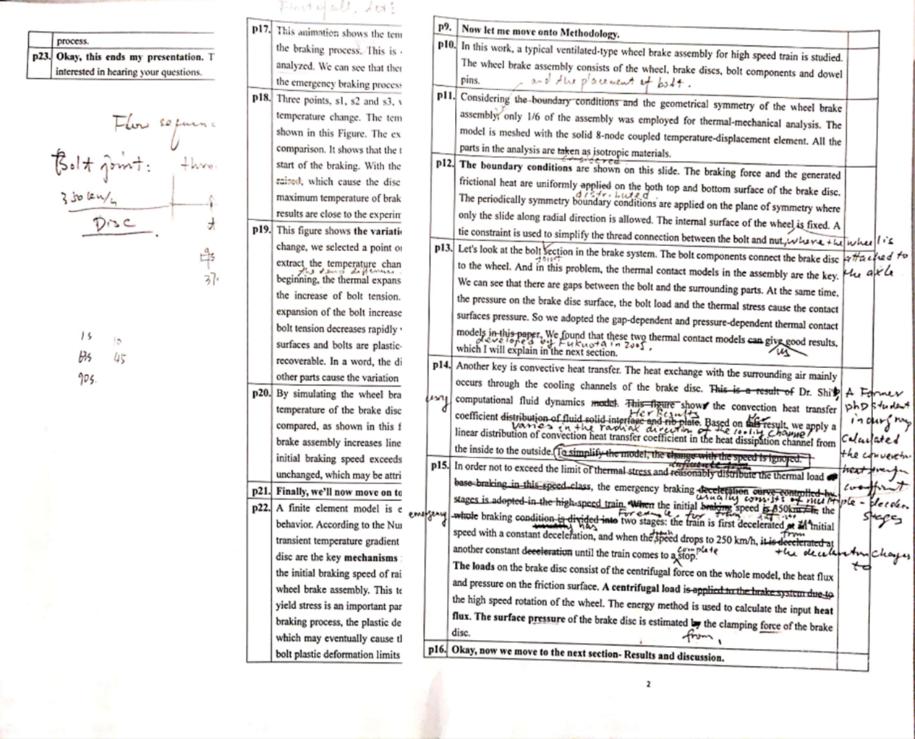 process.
p23. Okay, this ends my presentation. T
interested in hearing your questions.
Flow sequen
Bolt joint: thro
350 km/h
Disc
1s 10
45
90s
p17. This animation shows the tem
the braking process. This is
analyzed. We can see that ther
the emergency braking process
p18. Three points, s1, s2 and s3, w
temperature change. The tem
shown in this Figure. The ex
comparison. It shows that the t
start of the braking. With the
raised, which cause the disc
maximum temperature of brak
results are close to the experim
p19. This figure shows the variati
change, we selected a point or
extract the temperature chan
beginning, the thermal expans
the increase of bolt tension.
expansion of the bolt increase
bolt tension decreases rapidly
surfaces and bolts are plastic-
recoverable. In a word, the di
other parts cause the variation
p20. By simulating the wheel bra
temperature of the brake disc
compared, as shown in this f
brake assembly increases line
initial braking speed exceeds
unchanged, which may be attri
p21. Finally, we'll now move on to
p22. A finite element model is e
behavior. According to the Nu
transient temperature gradient
disc are the key mechanisms
the initial braking speed of rai
wheel brake assembly. This te
yield stress is an important par
braking process, the plastic de
which may eventually cause tl
bolt plastic deformation limits
p9. Now let me move onto Methodology.
p10. In this work, a typical ventilated-type wheel brake assembly for high speed train is studied.
The wheel brake assembly consists of the wheel, brake discs, bolt components and dowel
pins.
and the placement of bolt.
p11. Considering the boundary conditions and the geometrical symmetry of the wheel brake
assembly, only 1/6 of the assembly was employed for thermal-mechanical analysis. The
model is meshed with the solid 8-node coupled temperature-displacement element. All the
parts in the analysis are taken as isotropic materials.
considered
p12. The boundary conditions are shown on this slide. The braking force and the generated
frictional heat are uniformly applied on the both top and bottom surface of the brake disc.
distributed
The periodically symmetry boundary conditions are applied on the plane of symmetry where
only the slide along radial direction is allowed. The internal surface of the wheel is fixed. A
tie constraint is used to simplify the thread connection between the bolt and nut, where the wheel is
attached to
the axle
p13. Let's look at the bolt section in the brake system. The bolt components connect the brake disc
joint
to the wheel. And in this problem, the thermal contact models in the assembly are the key.
We can see that there are gaps between the bolt and the surrounding parts. At the same time,
the pressure on the brake disc surface, the bolt load and the thermal stress cause the contact
surfaces pressure. So we adopted the gap-dependent and pressure-dependent thermal contact
models in this paper. We found that these two thermal contact models can give good results,
developed by Fukuoka in
us
which I will explain in the next section.
p14. Another key is convective heat transfer. The heat exchange with the surrounding air mainly
occurs through the cooling channels of the brake disc. This is a result of Dr. Shi
A Former
phD student
in our group
calculated
the convection
heat
coefficient
using
computational fluid dynamics model. This figure show the convection heat transfer
Her Results
coefficient distribution of fluid solid interface and rib plate. Based on this result, we apply a
varies in the radial direction of the cooling channel
linear distribution of convection heat transfer coefficient in the heat dissipation channel from
the inside to the outside. To simplify the model, the change with the speed is ignored.
p15. In order not to exceed the limit of thermal stress and reasonably distribute the thermal load
base braking in this speed class, the emergency braking deceleration curve controlled by
usually consists of multiple-deceleration
stages
stages is adopted in the high-speed train. When the initial braking speed is 350km/h, the
emergency
whole braking condition is divided into two stages: the train is first decelerated at initial
usually has
from
speed with a constant deceleration, and when the speed drops to 250 km/h, it is decelerated at
the deceleration changes
to
another constant deceleration until the train comes to a stop.
complete
The loads on the brake disc consist of the centrifugal force on the whole model, the heat flux
and pressure on the friction surface. A centrifugal load is applied to the brake system due to
the high speed rotation of the wheel. The energy method is used to calculate the input heat
flux. The surface pressure of the brake disc is estimated by the clamping force of the brake
disc.
from
p16. Okay, now we move to the next section- Results and discussion.
2